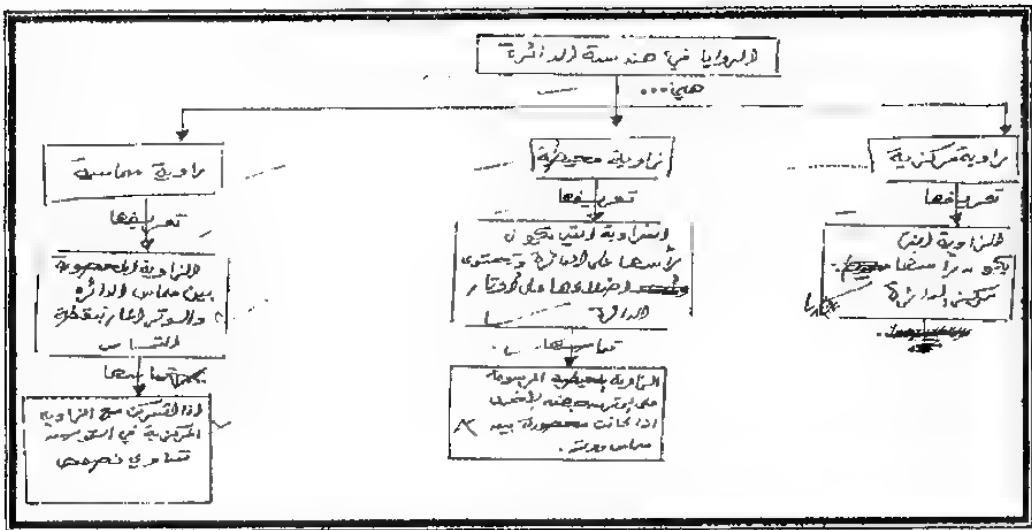 الزوايا في هندسة الدائرة
هي...
زاوية مركزية
تعريفها
الزاوية التي
يكون رأسها
مركز الدائرة
زاوية محيطية
تعريفها
الزاوية التي يكون
رأسها على الدائرة وتحتوي
اضلاعها على أوتار
الدائرة
قياسها
الزاوية المحيطية المرسومة
على
اذا كانت محصورة
زاوية مماسية
تعريفها
الزاوية المحصورة
بين مماس الدائرة
والوتر المار بنقطة
التماس
قياسها
اذا اشتركت مع الزاوية
المركزية في القوس
تساوي نصف